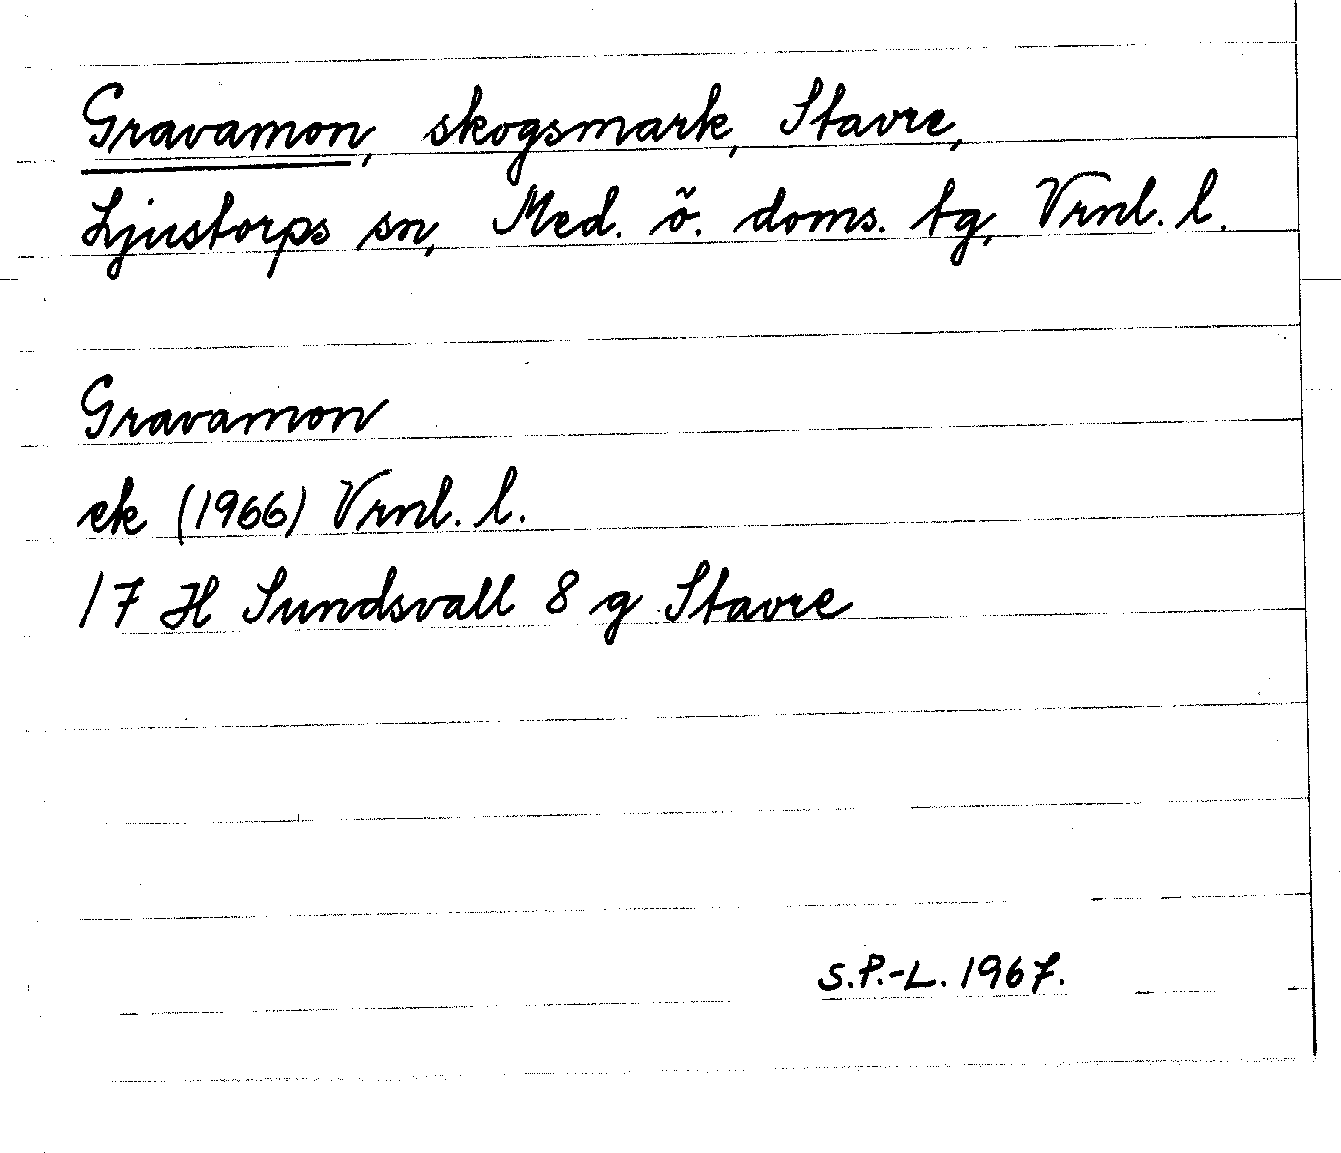 Gravamon, skogsmark, Stavre,
Ljustorps sn, Med. ö. doms. tg, Vrnl. l.
Gravamon
ek (1966) Vrnl. l.
17 H Sundsvall 8 g Stavre
S.P.-L. 1967.